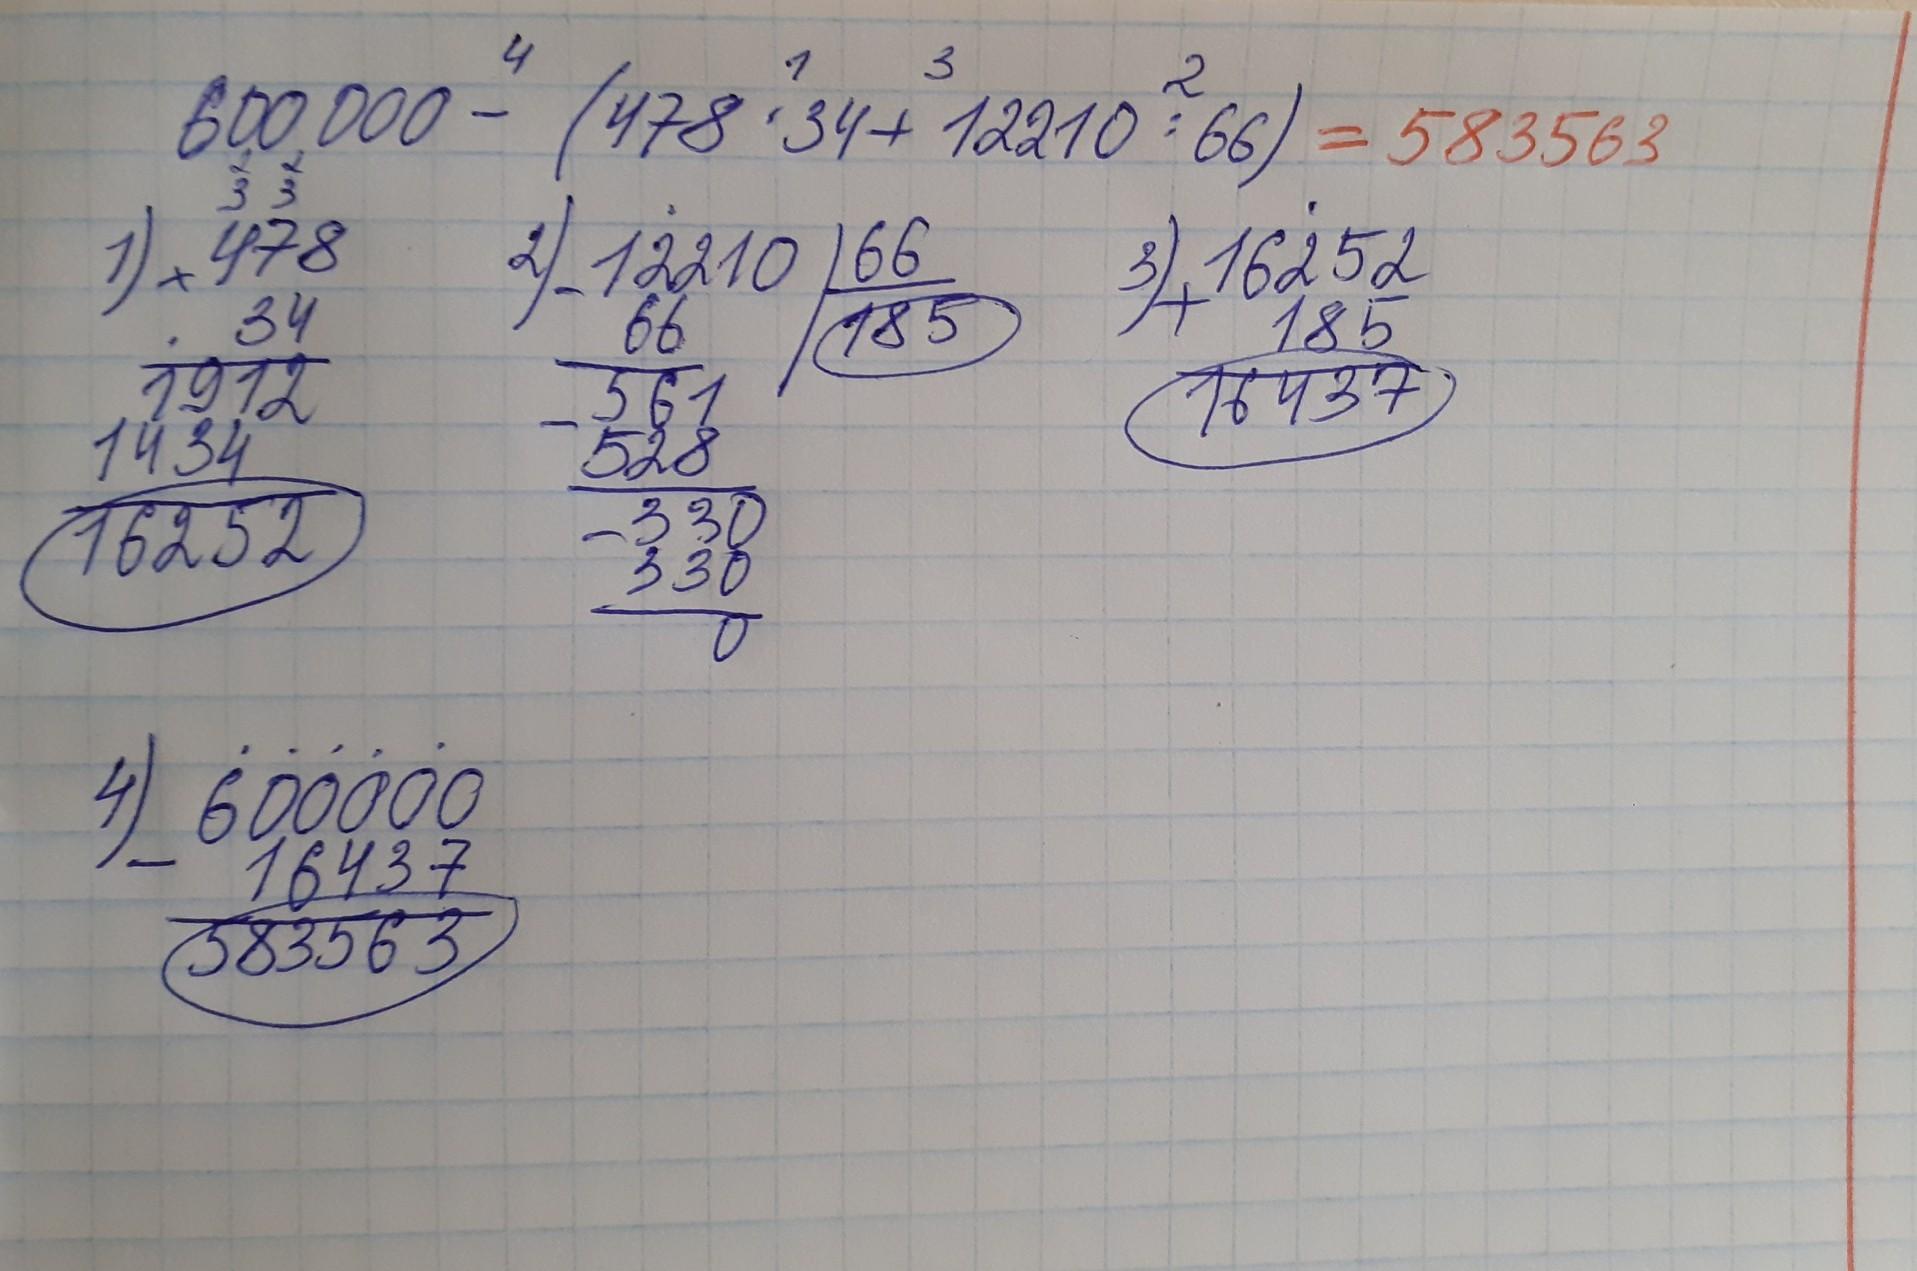 4 1 3 2
600000 - (478 · 34 + 12210 : 66) = 583563
2 2
3 3
1) × 478
34
1912
1434
16252
2) - 12210 | 66
66 185
- 561
528
- 330
330
0
3) + 16252
185
16437
4) - 600000
16437
583563